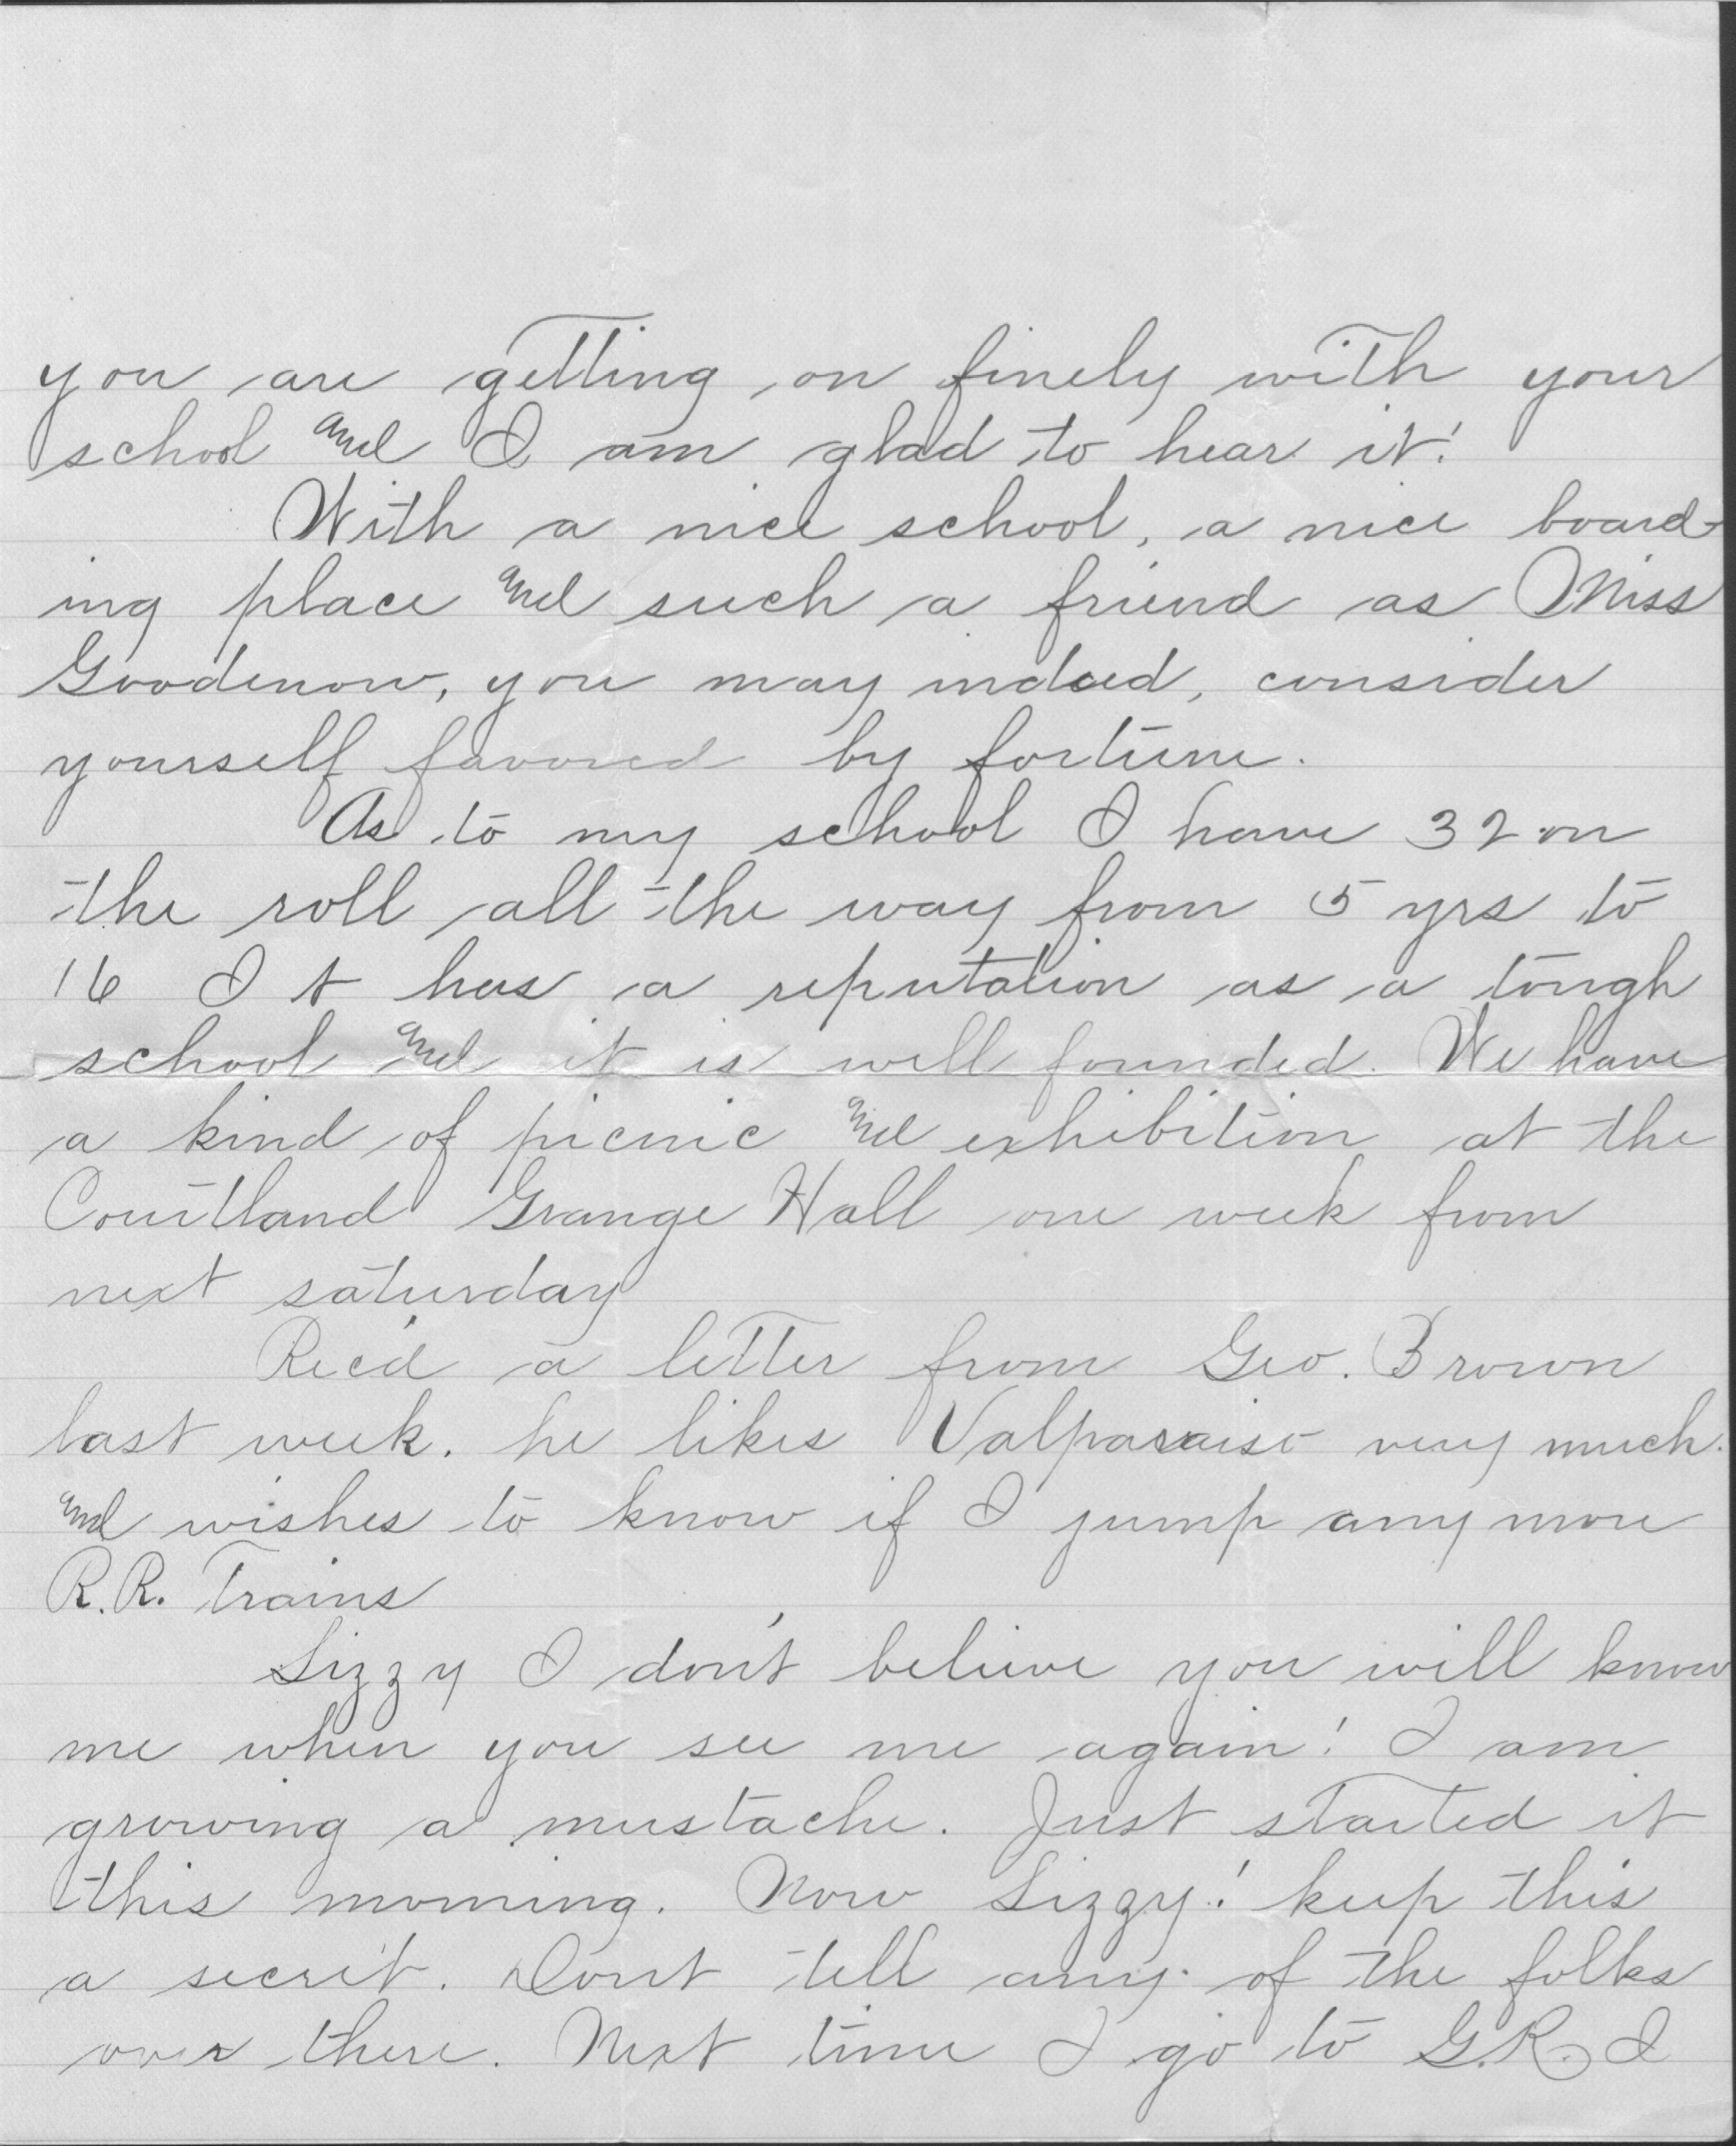 you are getting on finely with your
school and I am glad to hear it!
With a nice school, a nice board-
ing place and such a friend as Miss
Goodenow, you may indeed, consider
yourself favored by fortune.
As to my school I have 32 on
the roll all the way from 5 yrs to
16 It has a reputation as a tough
school and it is well founded. We have
a kind of picnic and exhibition at the
Courtland Grange Hall one week from
next saturday
Rec'd a letter from Geo. Brown
last week. he likes Valparaiso very much.
and wishes to know if I jump any more
R.R. Trains
Lizzy I don't believe you will know
me when you see me again! I am
growing a mustache. Just started it
this morning. Now Lizzy! keep this
a secret. Dont tell any of the folks
over there. Next time I go to G.R. I